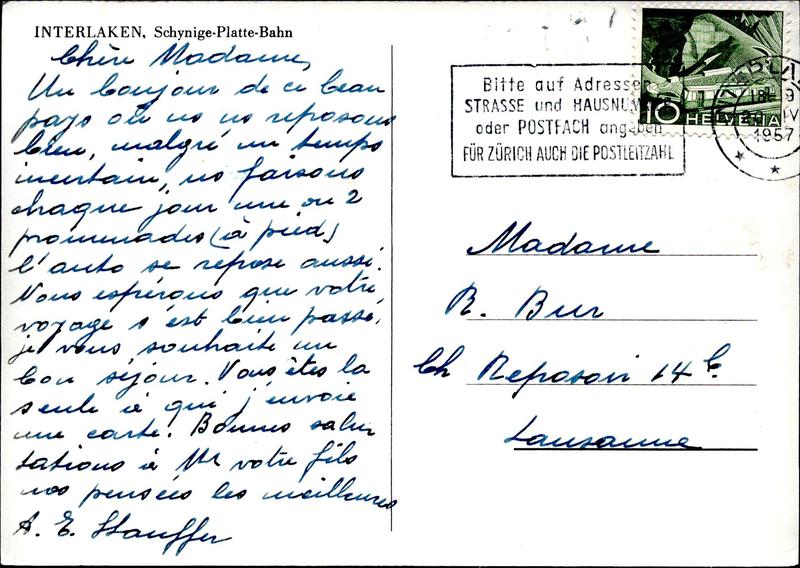 INTERLAKEN, Schynige-Platte-Bahn
Chère Madame,
Un bonjour de ce beau
pays où ns ns reposons
bien, malgré un temps
incertain, ns faisons
chaque jour une ou 2
promenades (à pied)
l'auto se repose aussi.
Nous espérons que votre
voyage s'est bien passé,
je vous souhaite un
bon séjour. Vous êtes la
seule à qui j'envoie
une carte. Bonnes salu-
tations à Mr votre fils
nos pensées les meilleures
A. E. Stauffer
Bitte auf Adressen
STRASSE und HAUSNUM
oder POSTFACH angeben
FÜR ZÜRICH AUCH DIE POSTLEITZAHL
10 HELVETIA
1957
Madame
R. Bur
Ch Reposoir 14 b.
Lausanne